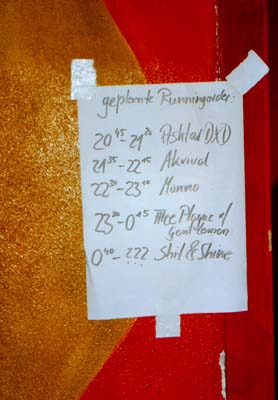 geplante Runningorder:
20⁴⁵-21²⁰ Ashtar DXD
21³⁵-22¹⁵ Akrival
22³⁰-23¹⁰ Monno
23³⁰-0¹⁵ Thee Plague of
Gentlemen
0⁴⁰-??? Shit & Shine